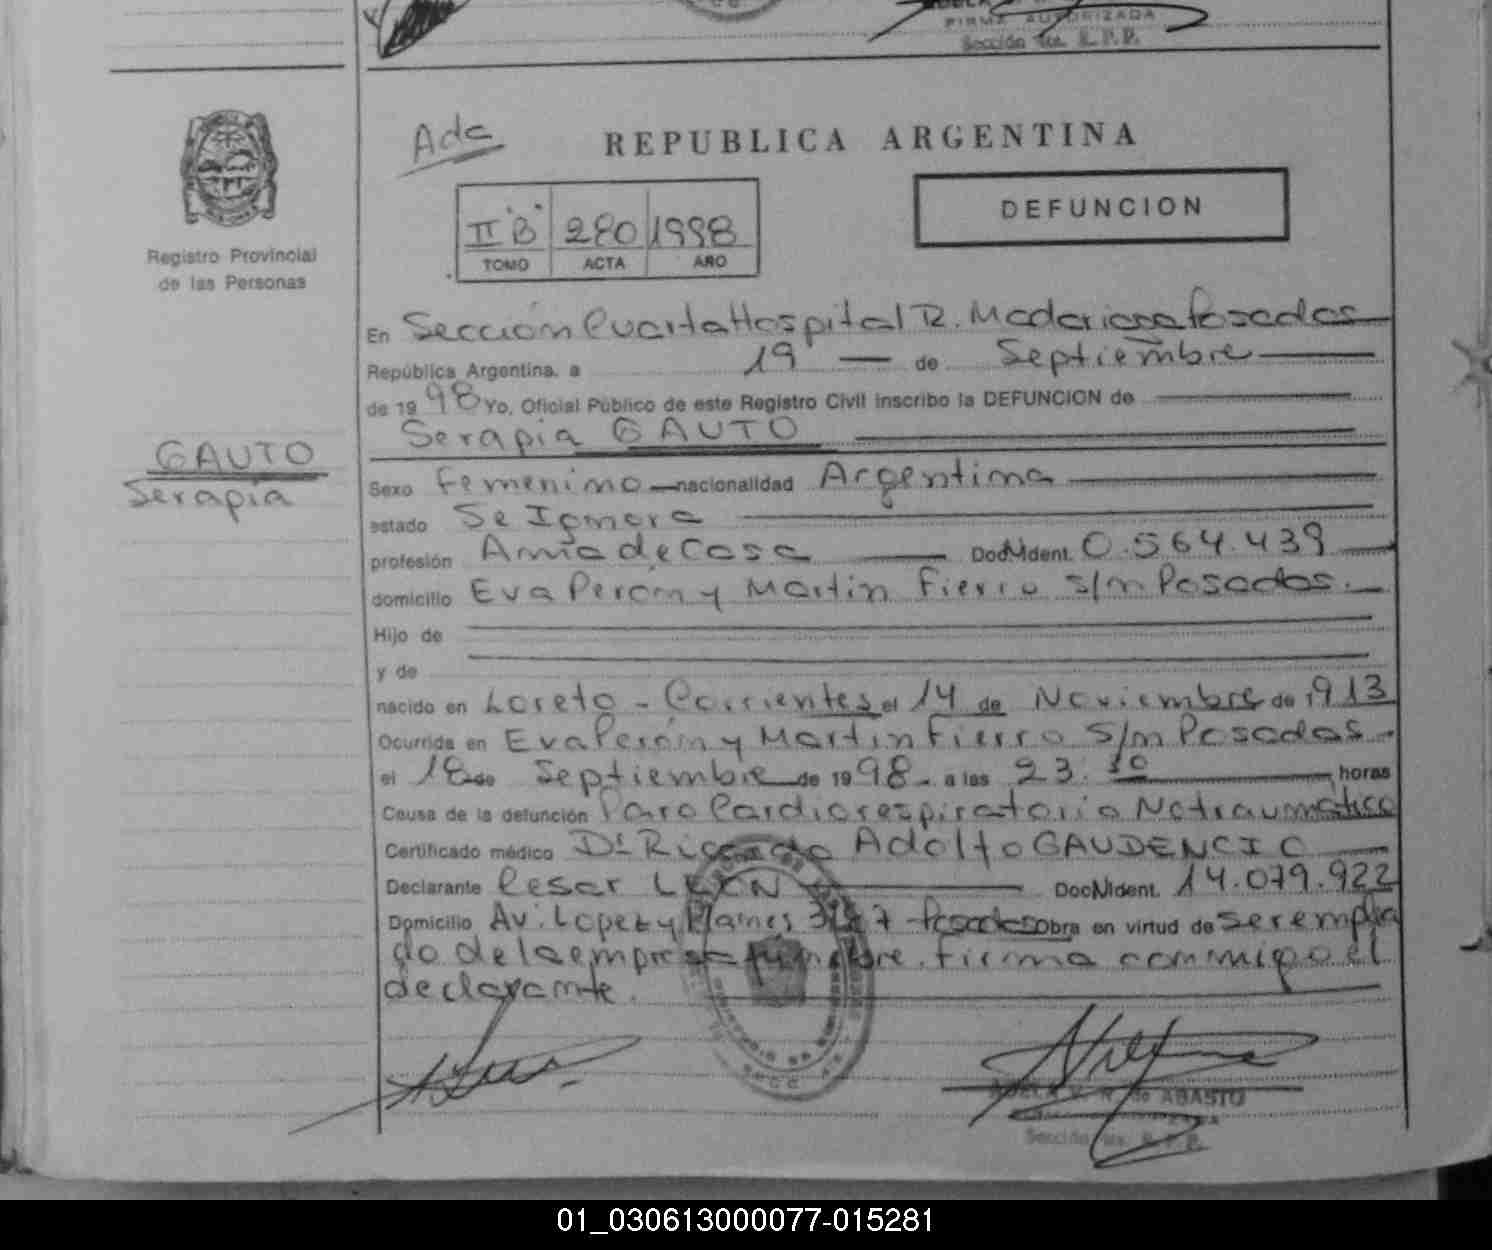 FIRMA AUTORIZADA
Sección 4ta. R.P.P.
Ade
REPUBLICA ARGENTINA
DEFUNCION
II "B" 280 1998
TOMO ACTA AÑO
Registro Provincial
de las Personas
GAUTO
Serapia
En Sección Cuarta Hospital R. Madariaga Posadas
República Argentina, a 19 — de Septiembre
de 1998 Yo, Oficial Público de este Registro Civil inscribo la DEFUNCION de
Serapia GAUTO
Sexo Femenino nacionalidad Argentina
estado Se Ignora
profesión Ama de Casa Doc. Ident. 0.564.439
domicilio Eva Perón y Martin Fierro s/n Posadas.
Hijo de
y de
nacido en Loreto - Corrientes el 14 de Noviembre de 1913
Ocurrida en Eva Perón y Martin Fierro S/n Posadas.
el 18 de Septiembre de 1998. a las 23:30 horas
Causa de la defunción Paro Cardiorespiratorio No traumático
Certificado médico Dr Ricardo Adolfo GAUDENCIO
Declarante Cesar LEON Doc. N Ident. 14.079.922
Domicilio Av. Lopez y Planes Posadas obra en virtud de ser emplea
do de la empresa fúnebre. Firma conmigo el
declarante.
de ABASTO
Sección 4ta. R.P.P.
01_030613000077-015281